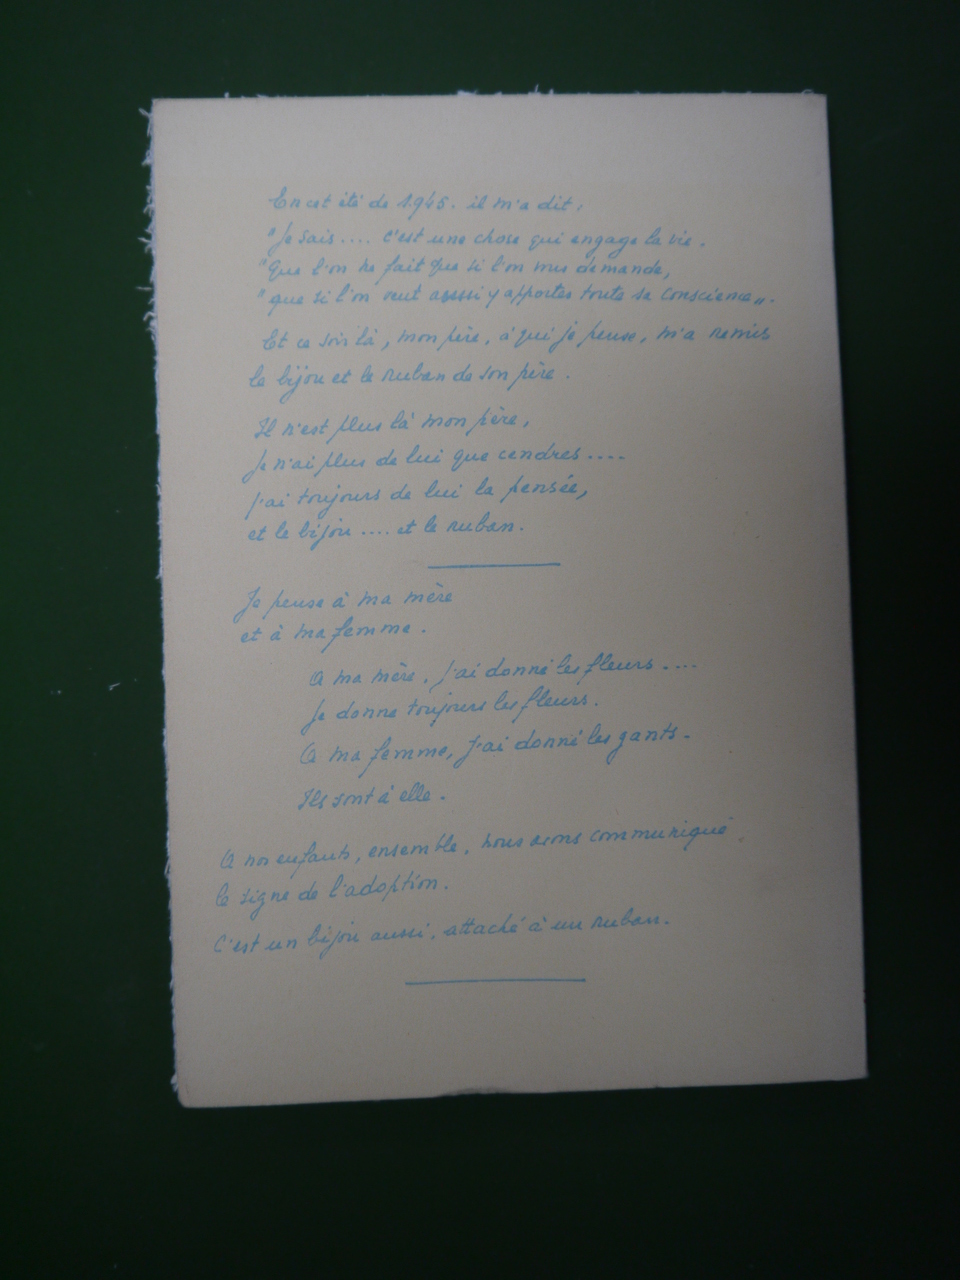 En cet été de 1945. il m'a dit:
"Je sais.... c'est une chose qui engage la vie.
"Que l'on ne fait que si l'on vous demande,
"que si l'on veut aussi y apporter toute sa conscience„.
Et ce soir là, mon père, à qui je pense, m'a remis
le bijou et le ruban de son père.
Il n'est plus là mon père,
Je n'ai plus de lui que cendres....
J'ai toujours de lui la pensée,
et le bijou .... et le ruban.
Je pense à ma mère
et à ma femme.
A ma mère, j'ai donné les fleurs ....
Je donne toujours les fleurs.
A ma femme, j'ai donné les gants.
Ils sont à elle.
A nos enfants, ensemble, nous avons communiqué
le signe de l'adoption.
C'est un bijou aussi, attaché à un ruban.